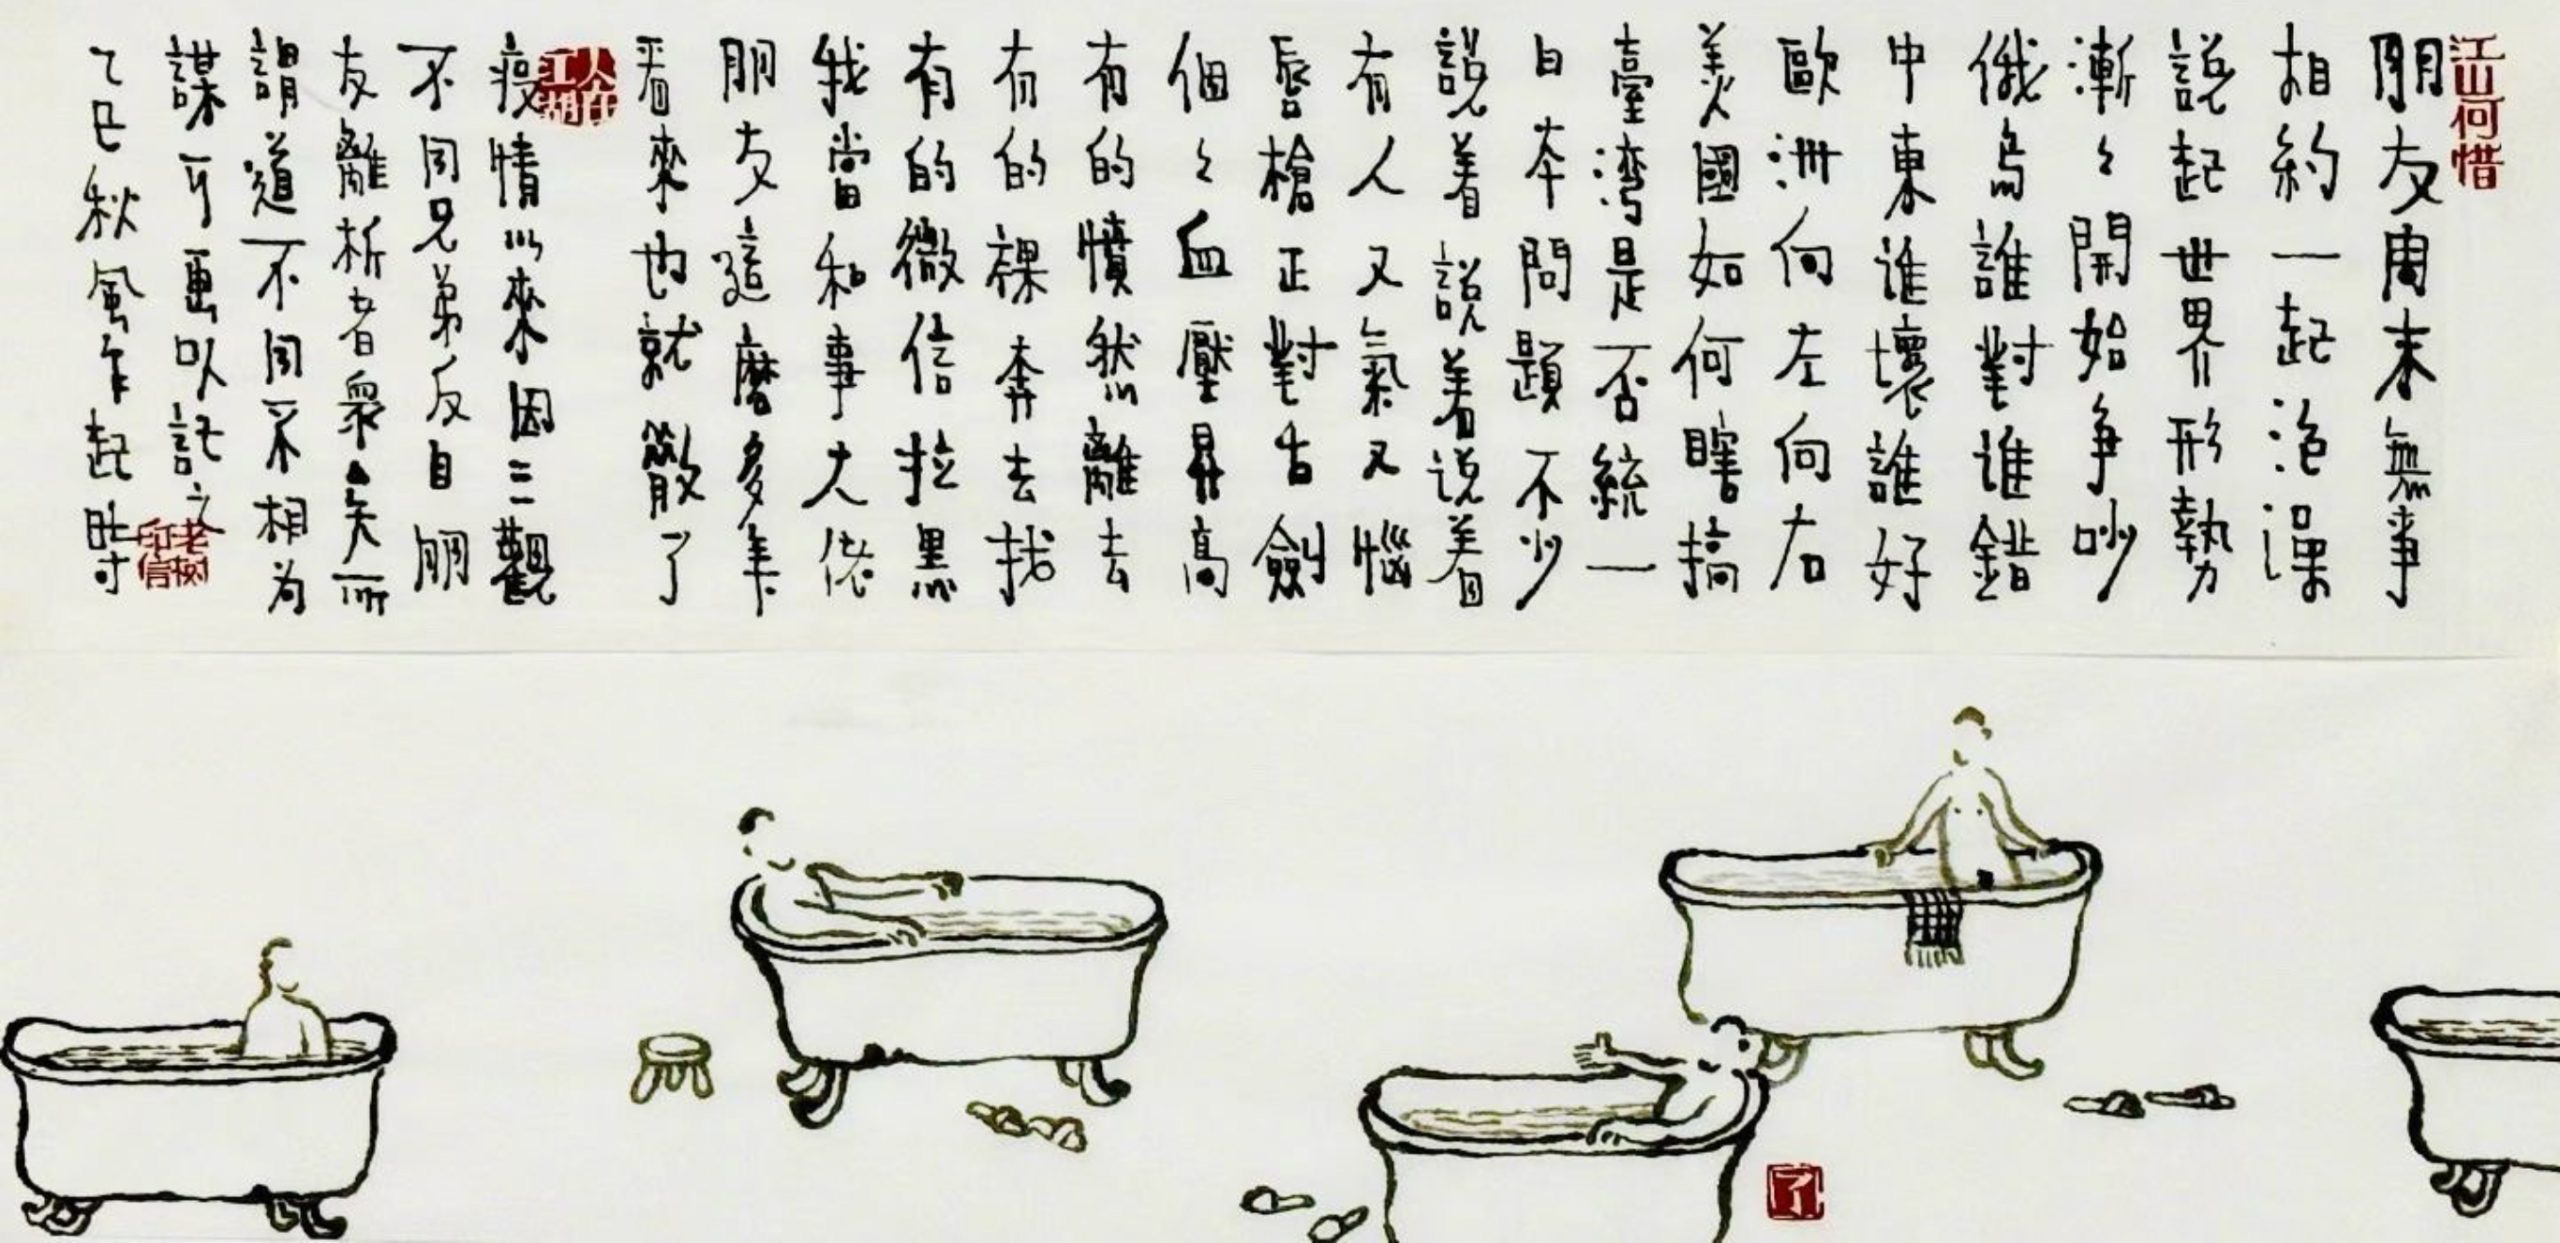 江山何惜
朋友周末無事
相約一起泡澡
說起世界形勢
漸々開始爭吵
俄烏誰對谁錯
中東谁壞誰好
歐洲向左向右
美國如何瞎搞
臺灣是否統一
日本問題不少
說着說着说着
有人又氣又惱
唇槍正對舌劍
個々血壓昇高
有的憤然離去
有的裸奔去找
有的微信拉黑
我當和事大佬
朋友這麼多年
看來也就散了
人在江湖
疫情以來因三觀
不同兄弟反目朋
友離析者眾矣所
謂道不同不相为
謀可更以記之
乙巳秋風乍起時
老樹印信
了